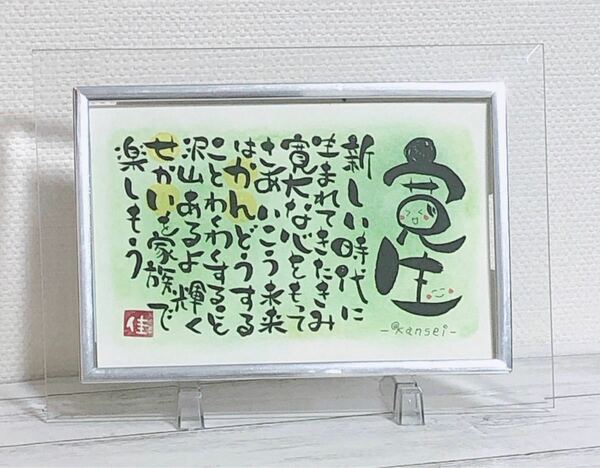 寛生
-kansei-
新しい時代に
生まれてきたきみ
寛大な心をもって
さあ いこう未来
は かんどうする
ことわくわくすること
沢山あるよ 輝く
せかいを家族で
楽しもう
佳